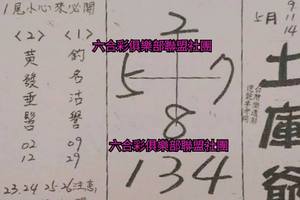 1尾小心來必開
<2>
黄發垂髫
02
12
<1>
釣名沽譽
09
29
23.24 25.26注意
六合彩俱樂部聯盟社團
2
5 7
8
六合彩俱樂部聯盟社團
134
5月
9
11
14
土庫爺